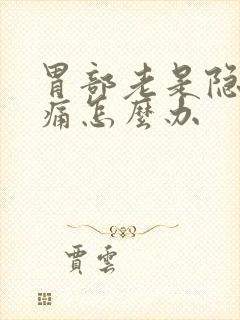 胃部老是隐
痛怎麼办
賈雲